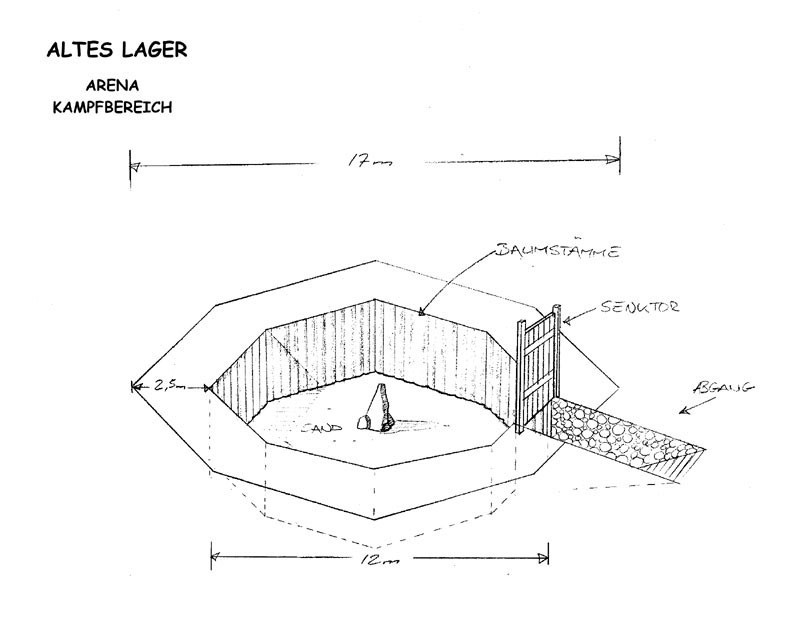 ALTES LAGER
ARENA
KAMPFBEREICH
17m
BAUMSTÄMME
SENKTOR
2,5m
ABGANG
SAND
12m